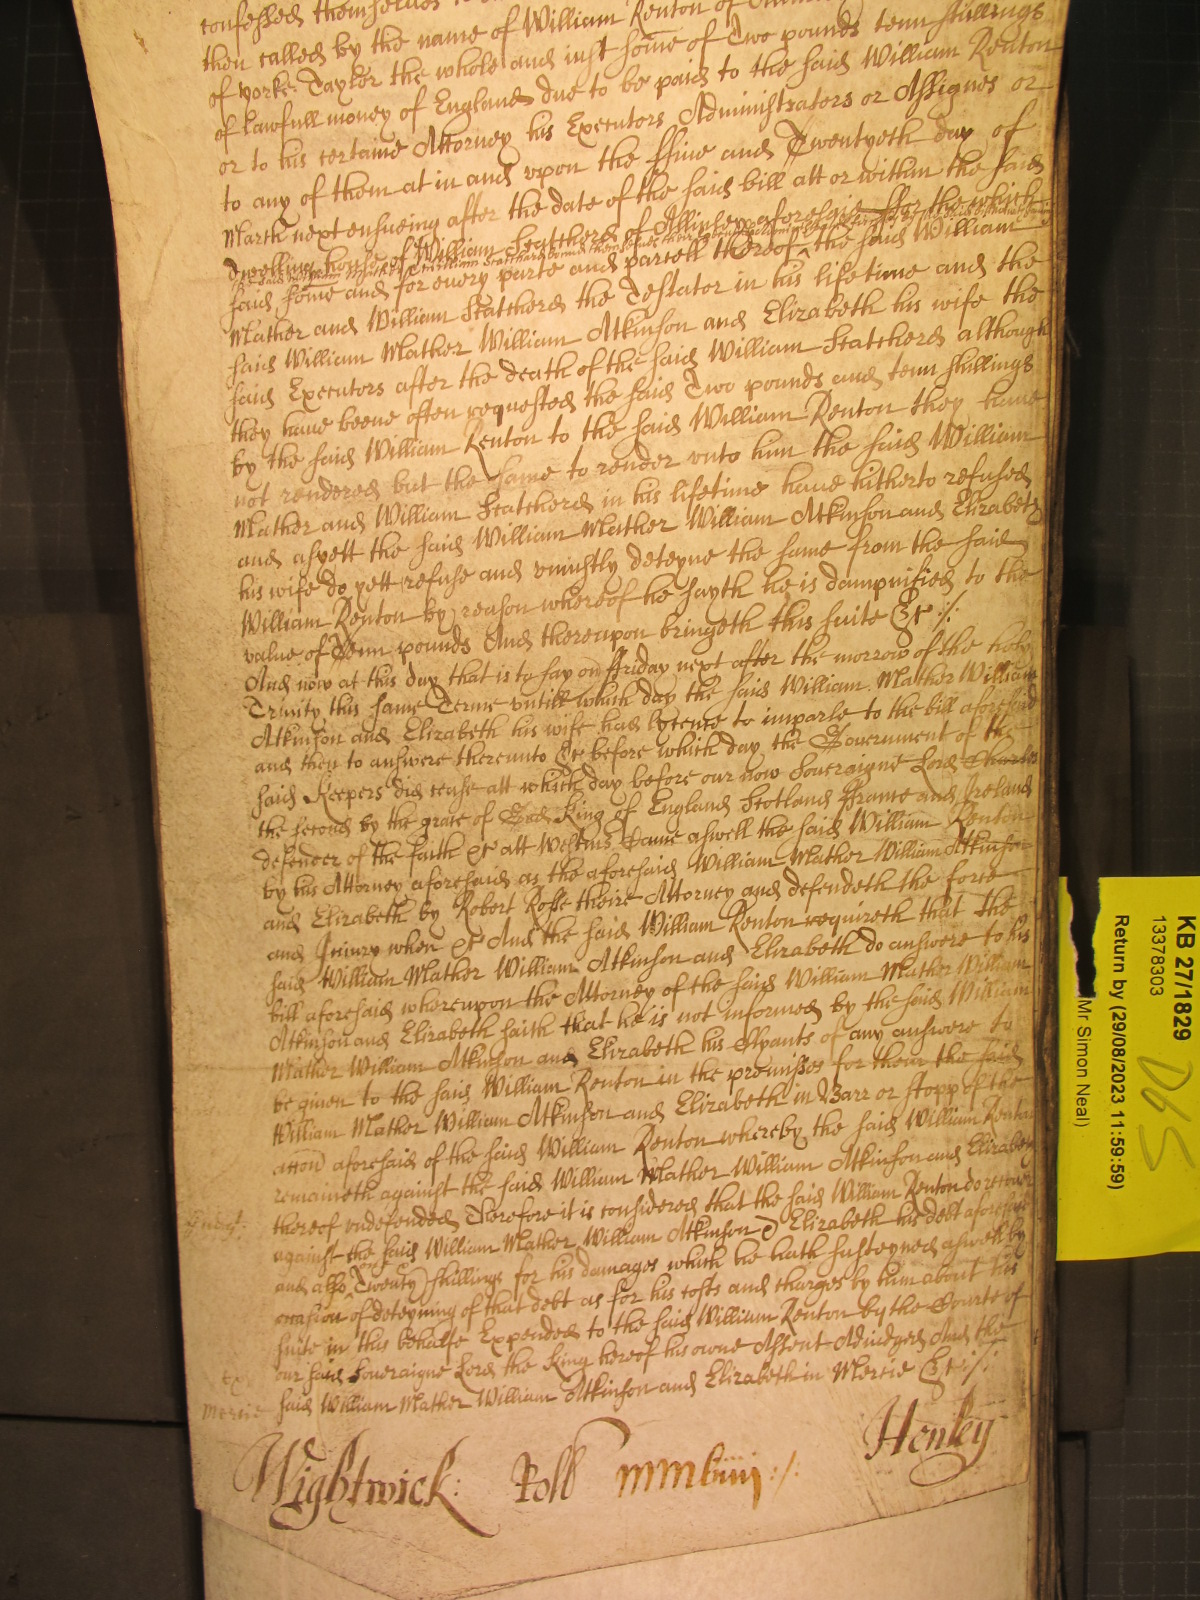 confessed themselves
then called by the name of William Renton of
of Yorke Taylor the whole and inst some of Two pounds tenn shillings
of lawfull money of England due to be paid to the said William Renton
or to his certaine Attorney his Executors Administrators or Assignes or
to any of them at in and vpon the ffiue and Twentyeth day of
March next ensueing after the date of the said bill att or within the said
dwelling house of William Scatcherd of aforesaid ffor the which
said some and for euery parte and parcell thereof the said William
Mather and William Scatcherd the Testator in his lifetime and the
said William Mather William Atkinson and Elizabeth his wife the
said Executors after the death of the said William Scatcherd although
they haue beene often requested the said Two pounds and tenn shillings
by the said William Renton to the said William Renton they haue
not rendered but the same to render vnto him the said William
Mather and William Scatcherd in his lifetime haue hitherto refused
and asyett the said William Mather William Atkinson and Elizabeth
his wife do yett refuse and vniustly deteyne the same from the said
William Renton by reason whereof he sayth he is dampnified to the
value of Tenn pounds And therevpon bringeth this suite &c :/.
And now at this day that is to say on ffriday next after the morrow of the holy
Trinity this same Terme vntill which day the said William Mather William
Atkinson and Elizabeth his wife had lycence to imparle to the bill aforesaid
and then to answere therevnto &c before which day the Gouernment of the
said Keepers did cease att which day before our now Soueraigne Lord Charles
the second by the grace of God King of England Scotland ffrance and Ireland
defender of the faith &c att Westmr Came aswell the said William Renton
by his Attorney aforesaid as the aforesaid William Mather William Atkinson
and Elizabeth by Robert Rosse theire Attorney and defendeth the force
and Iniury when &c And the said William Renton requireth that the
said William Mather William Atkinson and Elizabeth do answere to his
bill aforesaid wherevpon the Attorney of the said William Mather William
Atkinson and Elizabeth saith that he is not informed by the said William
Mather William Atkinson and Elizabeth his of any answere to
be giuen to the said William Renton in the premisses for them the said
William Mather William Atkinson and Elizabeth in Barr or stopp of the
accon aforesaid of the said William Renton whereby the said William Renton
remaineth against the said William Mather William Atkinson and Elizabeth
Judgt: thereof vndefended Therefore it is considered that the said William Renton do recouer
against the said William Mather William Atkinson & Elizabeth his debt aforesaid
and also Twenty shillings for his damages which he hath susteyned aswell by
occasion of deteyning of that debt as for his costs and charges by him about his
suite in this behalfe Expended to the said William Renton by the Courte of
our said Soueraigne Lord the King hereof his owne Assent Adiudged And the
Mercie said William Mather William Atkinson and Elizabeth in Mercie &c :/:
Wightwick: Roll mmbiiij :/. Henley
KB 27/1829
13378303
D65
Return by (29/08/2023 11:59:59)
Mr Simon Neal)